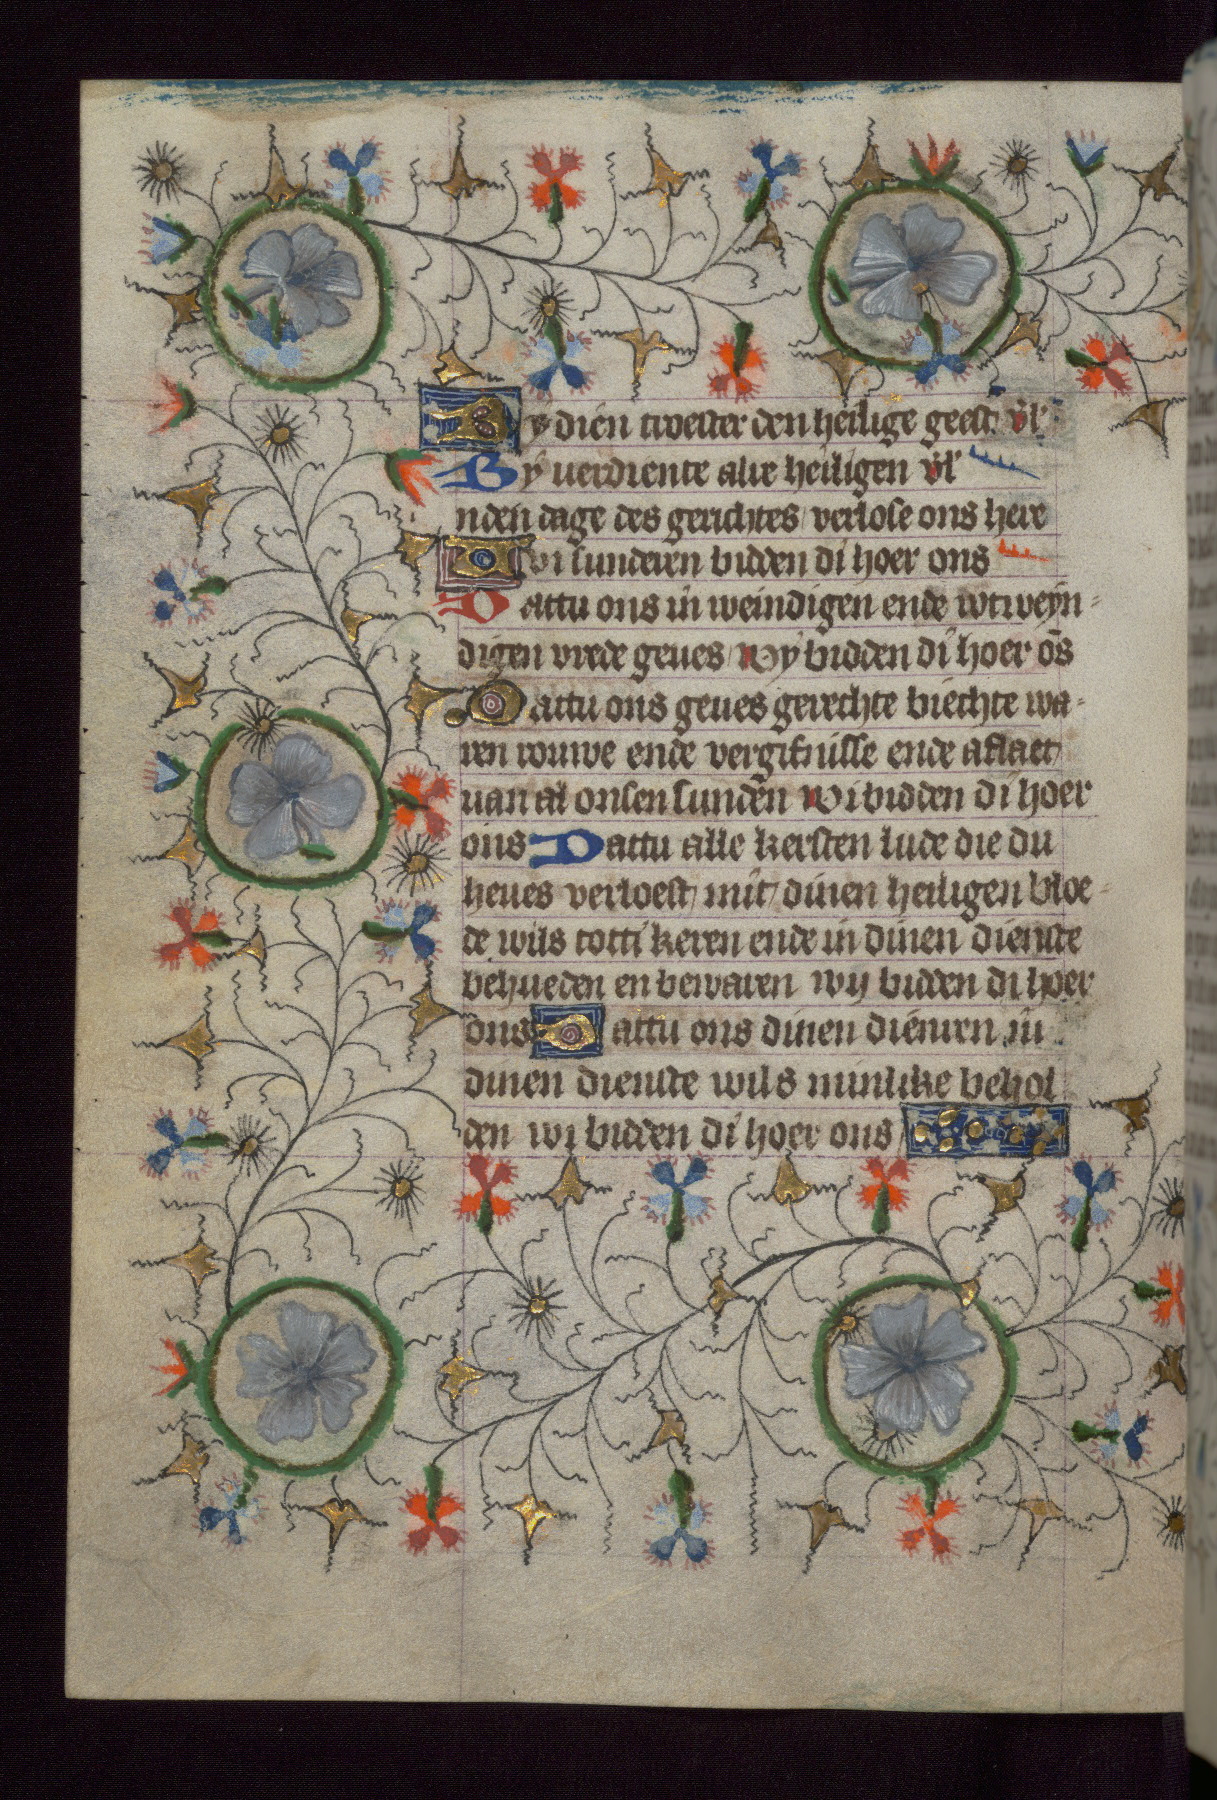 By dien troester den heilige geest v̄l'
By verdiente alre heiligen v̄l'
nden dage des gerichtes verlose ons here
wi sunderen bidden di hoer ons
Dattu ons in weindigen ende wtweyn
digen vrede geues wy bidden di hoer ōs
Dattu ons geues gerechte biechte wa
ren rouwe ende vergifnisse ende aflaet
uan al onsen sunden wi bidden di hoer
ons Dattu alle kersten lude die du
heues verloest mit dinen heiligen bloe
de wils totti keren ende in dinen dienste
behueden en bewaren wij bidden di hoer
ons Dattu ons dinen dienren in
dinen dienste wils minlike behol
den wi bidden di hoer ons